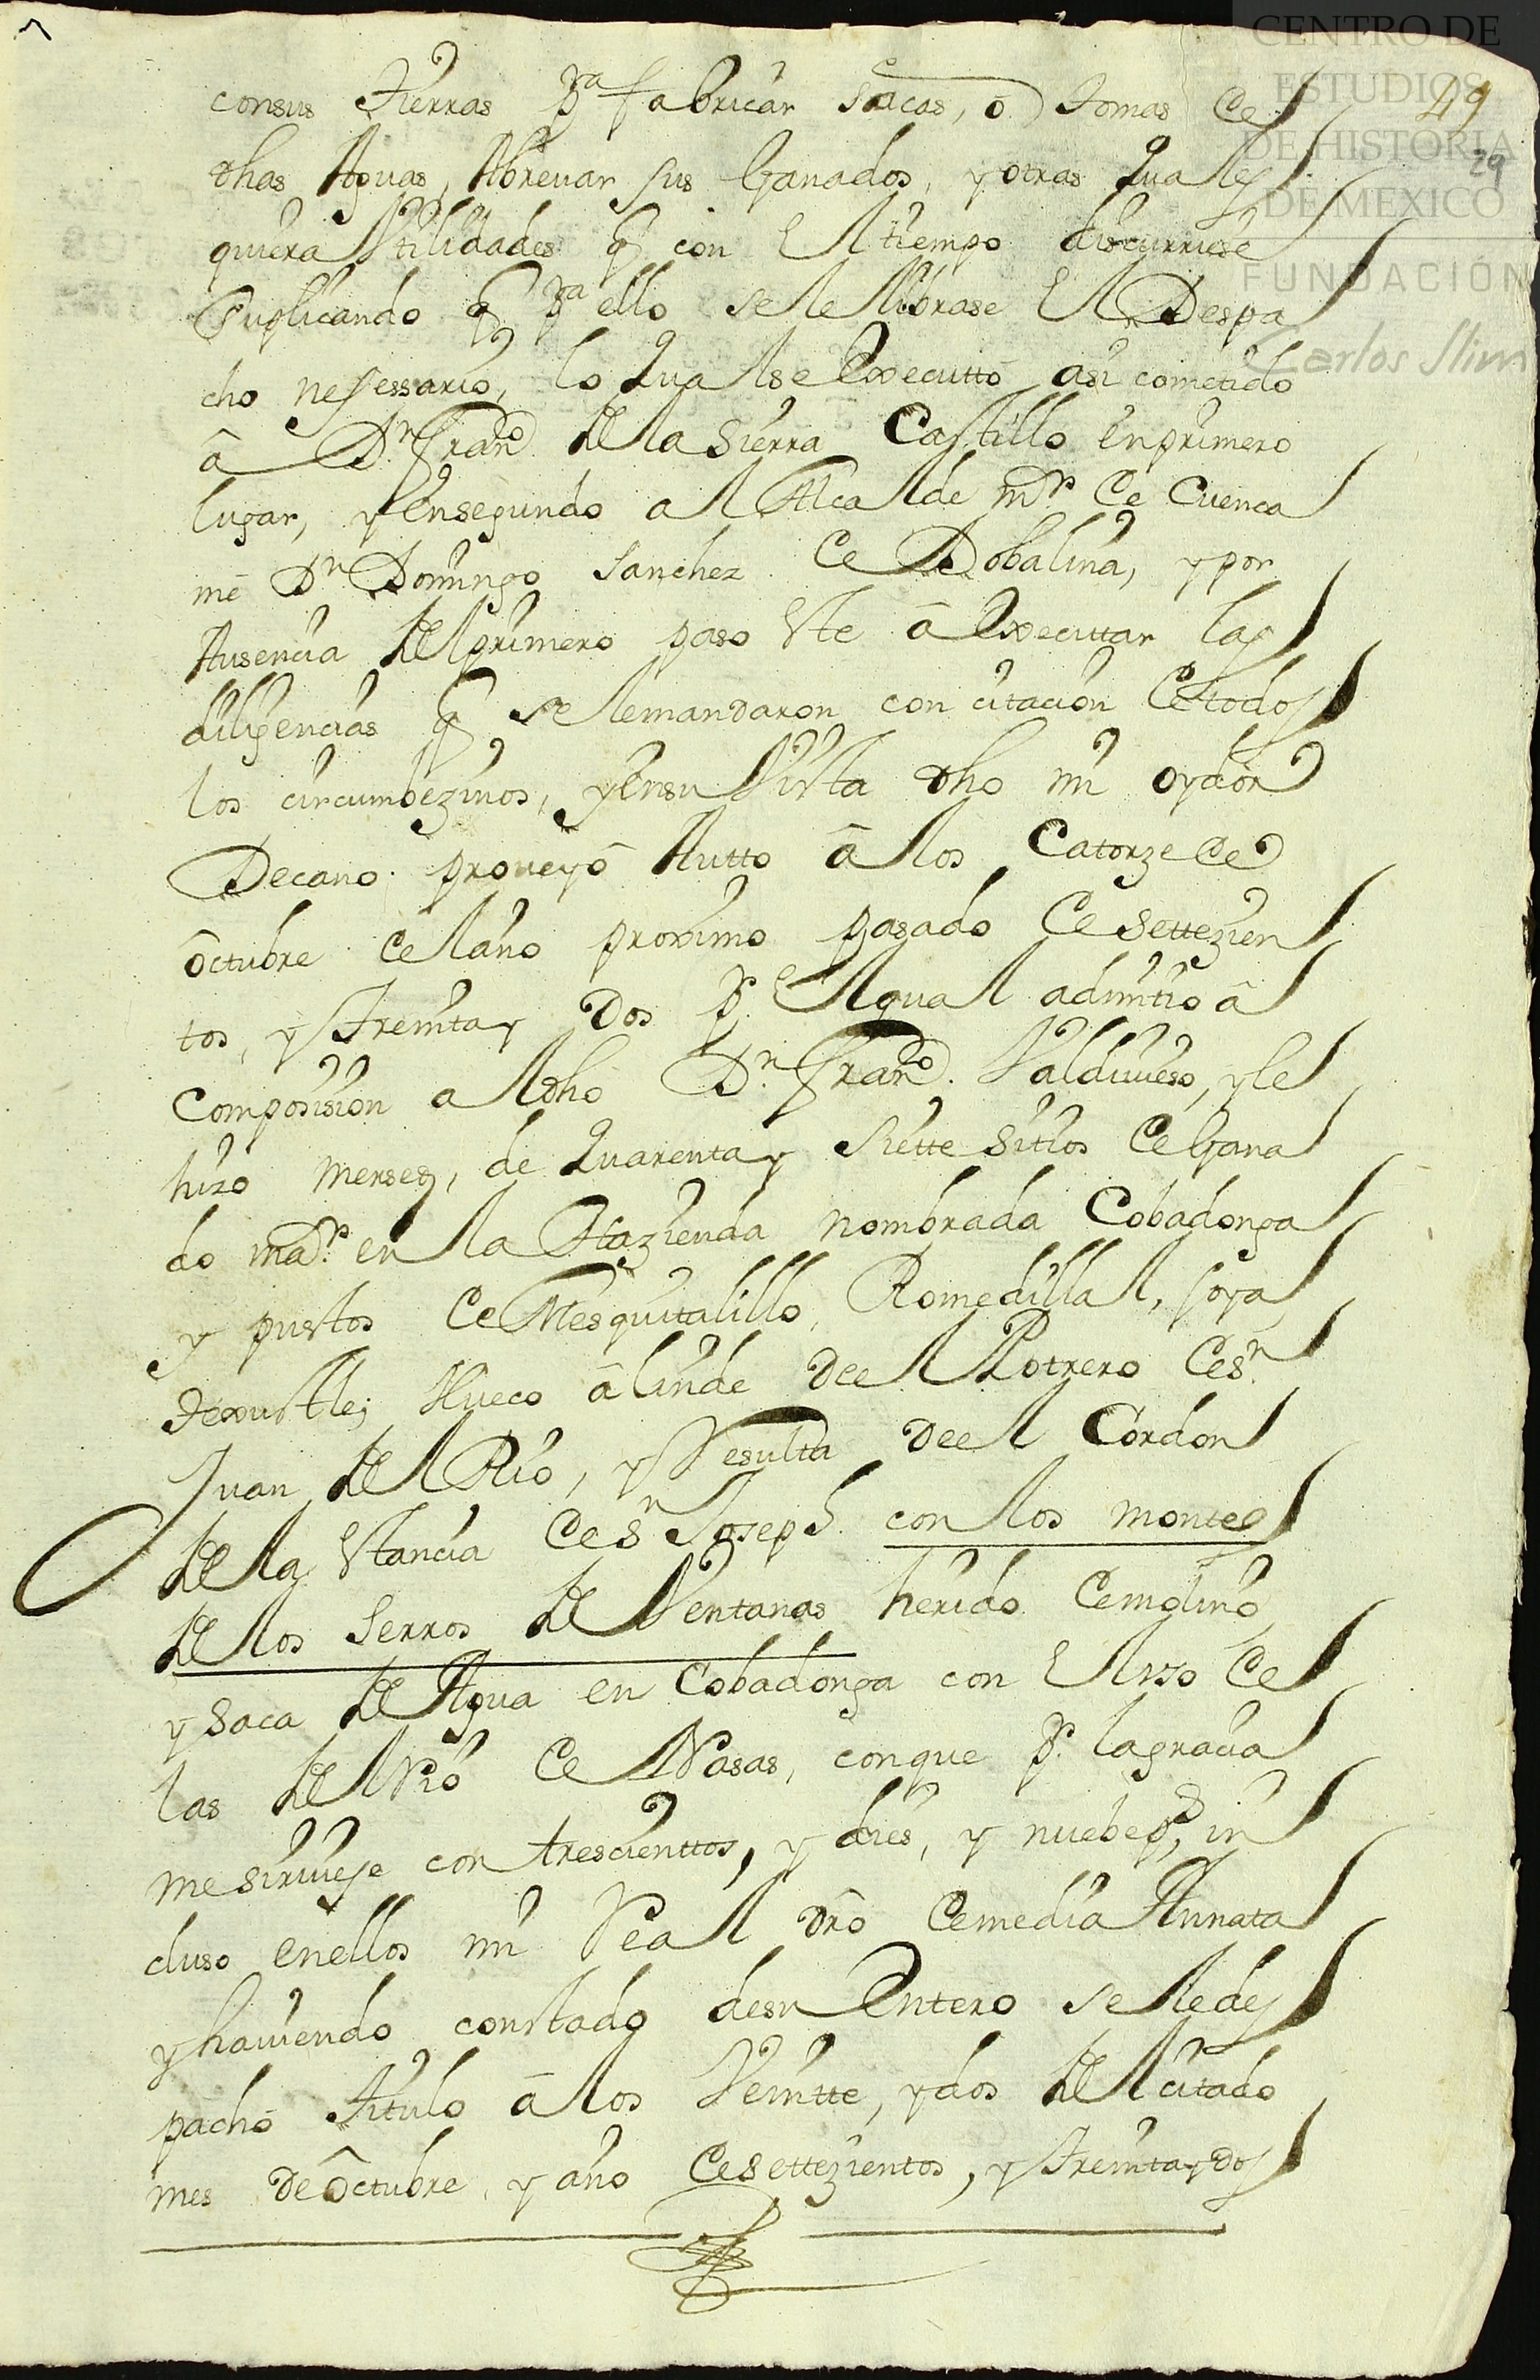 CENTRO DE
ESTUDIOS
DE HISTORIA
DE MEXICO
FUNDACIÓN
Carlos Slim
49
29
consus tierras pa fabricar sacas, ó tomas de
dhas Aguas, Abrevar sus Ganados, y otras quales
quiera Vtilidades q con el tiempo discurriese
Suplicando q pa ello sele librase el Despa
cho nesessario, lo qual se executtó asi cometido
â Dn Franco de la Sierra Castillo en primero
lugar, y en segundo al Alcalde mr de Cuenca
mé Dn Domingo Sanchez de Dobalina, y por
Ausencia del primero paso este â executtar las
diligencias q se le mandaron con citacion de todos
los circumbezinos, y en su Vista dho mi oydor
Decano proveyó Autto â los Catorze de
Octubre del año proximo pasado de settezien
tos, y treinta y dos pr el qual admitio â
composision al dho Dn Franco Valdivieso, y le
hizo mersed, de quarenta y siette sitios de Gana
do mar en la Hazienda nombrada Cobadonga
y puestos de Mesquitalillo, Romedillal, soya
texustle, Hueco â linde de el Potrero de Sn
Juan del Rio, y Resulta de el Cordon
de la Estancia de Sn Joseph con los montes
de los Serros de Ventanas herido de molino
y saca de Agua en Cobadonga con el Vso de
las del Rio de Nasas, conque pr la gracia
me sirviese con trescienttos, y dies, y nuebe ps, in
cluso en ellos mi Real dro de media Annata
y haviendo constado de su Entero se le des
pachó titulo â los Veintte, y dos del citado
mes de Octubre, y año de settezientos, y treinta y dos